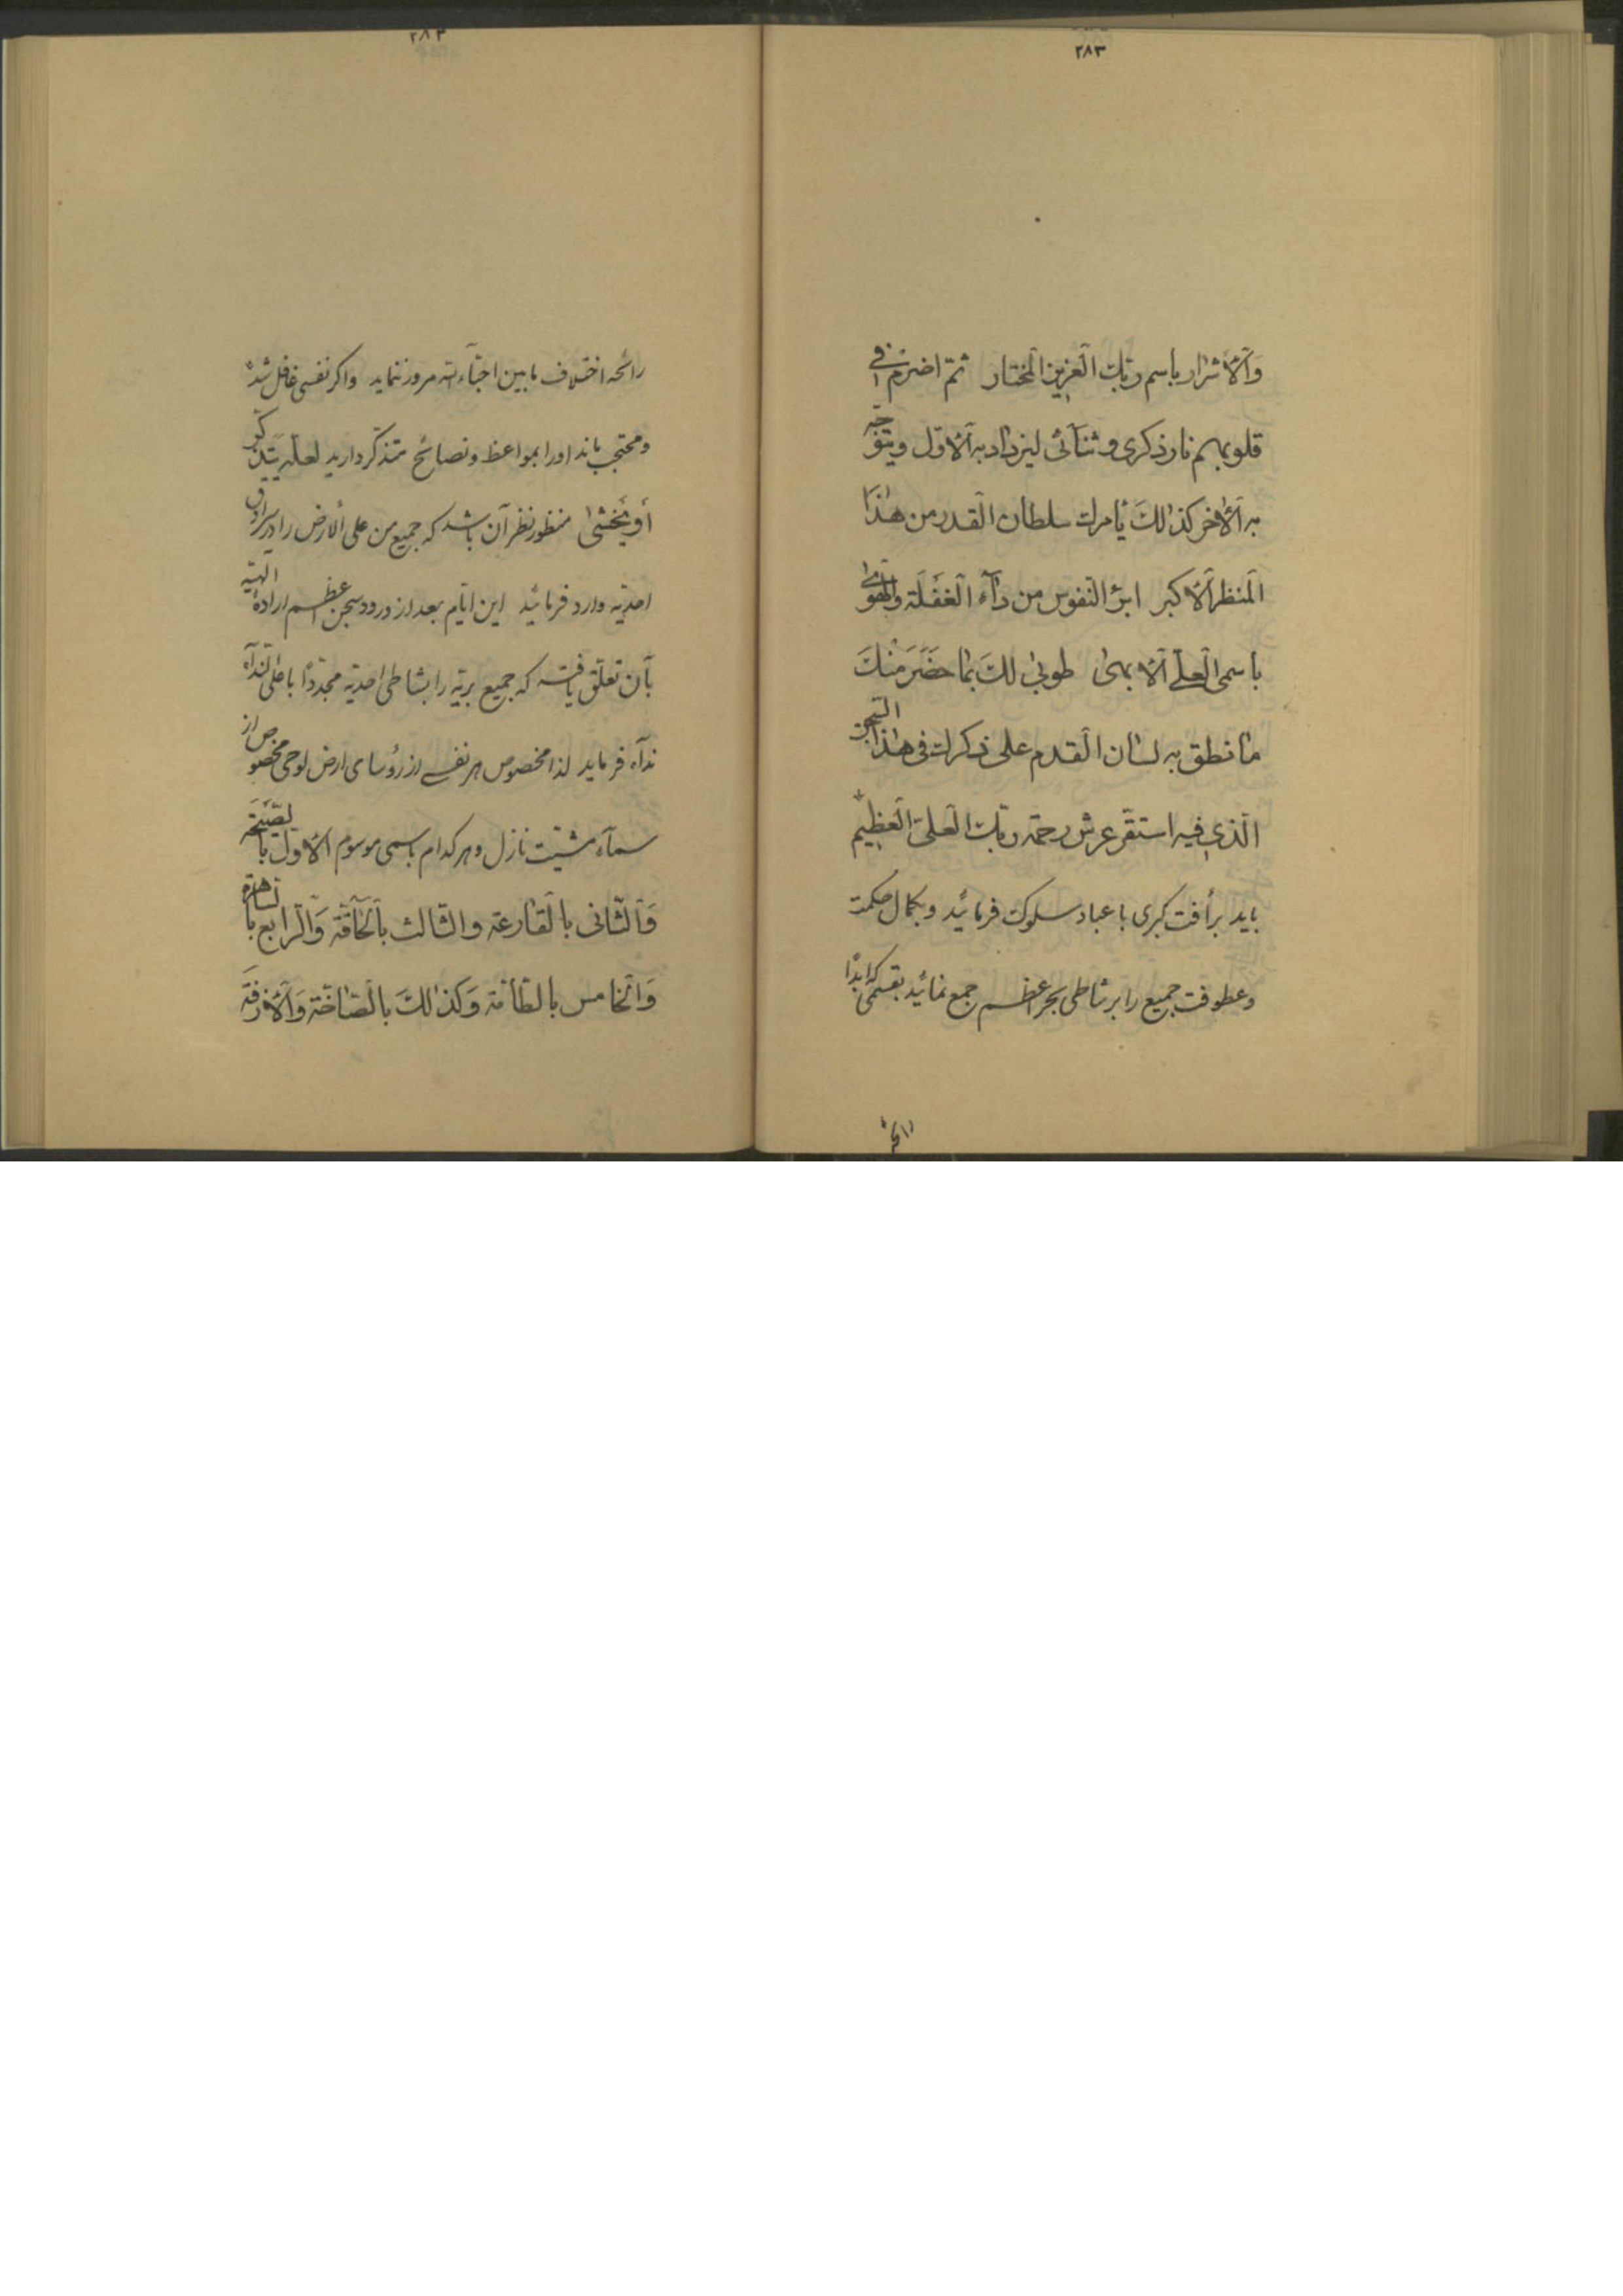 ٢٨٣
وَالْأشرار باسم ربّك العزيز المختار ثمّ اضرم فی
قلوبهم نار ذكری و ثنآئی ليزداد به الأوّل و يتوجّه
به الأخر كذلكَ يأمرك سلطان القدر من هذا
المنظر الأكبر ابرء النفوس من دآء الغفلة والهوی
باسمی العلیّ الأبهی طوبی لكَ بما حضَرَ منكَ
ما نطق به لسان القدم علی ذكرك فی هذا السّجن
الّذی فيه استقرّ عرش رحمة ربّك العلیّ العظيم
بايد برأفت كبری با عباد سلوك فرمائيد و بكمال حكمت
و عطوفت جميع را بر شاطی بحر اعظم جمع نمائيد بقسمی كه ابدًا
رائحه
٢٨٤
رائحه اختلاف ما بين احبّآء الله مرور ننمايد و اكر نفسی غافل شده
و محتجب ماند او را بمواعظ و نصائح متذكّر داريد لعلّه يتذكّر
أو يخشی منظور نظر آن باشد كه جميع من علی الأرض را در سرادق
احديّه وارد فرمائيد اين ايّام بعد از ورود سجن اعظم اراده الهيّه
بآن تعلّق يافته كه جميع بريّه را بشاطی احديّه مجدّدًا باعلی النّدآء
ندآء فرمايد لذا مخصوص هر نفسی از رؤسای ارض لوحی مخصوص از
سمآء مشيّت نازل و هر كدام باسمی موسوم الأوّل بالصّيحة
وَالثّانی بالقارعة والثالث بالحآقّة وَالرّابع بالسّاهرة
وَالخامس بالطّآمّة وَكذلكَ بالصّاخّة وَالأزفة